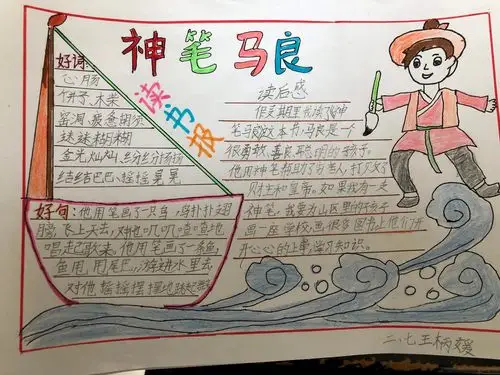 神笔马良
读书报
好词:
心肠
饼子、木柴
窑洞、疲惫
迷迷糊糊
金光灿灿、纷纷扬扬
结结巴巴、摇摇晃晃
好句:他用笔画了一只鸟,鸟扑扑翅
膀,飞上天去,对他叽叽喳喳地
唱起歌来。他用笔画了一条鱼,
鱼用尾巴,游进水里去,
对他摇摇摆摆地跳起舞
读后感
假期里我读了《神
笔马良》这本书,马良是一个
很勇敢、善良、聪明的孩子。
他用神笔帮助了穷苦人,打败了
财主和皇帝。如果我有一支
神笔,我要为山区里的孩子
画一座学校,画很多图书让他们开
开心心的上学,学习知识。
二、七王柄媛